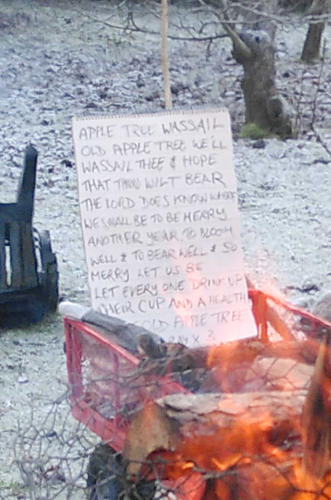 APPLE TREE WASSAIL
OLD APPLE TREE WE'LL
WASSAIL THEE & HOPE
THAT THOU WILT BEAR
THE LORD DOES KNOW WHERE
WE SHALL BE TO BE MERRY
ANOTHER YEAR. TO BLOOM
WELL & TO BEAR WELL & SO
MERRY LET US BE
LET EVERY ONE DRINK UP
THEIR CUP AND A HEALTH
OLD APPLE TREE
X 3